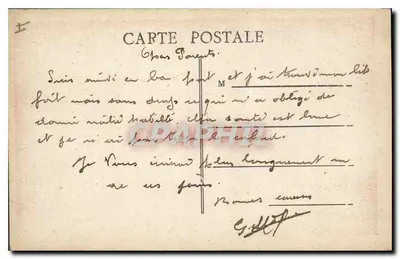 CARTE POSTALE
Chers Parents
Suis arrivé en bon port et j'ai trouvé mon lit
M
fait mais sans draps ce qui m'a obligé de
dormir moitié habillé. Ma santé est bonne
et je n'ai pas
Je Vous écrirai plus longuement un
de ces jours.
Bonnes